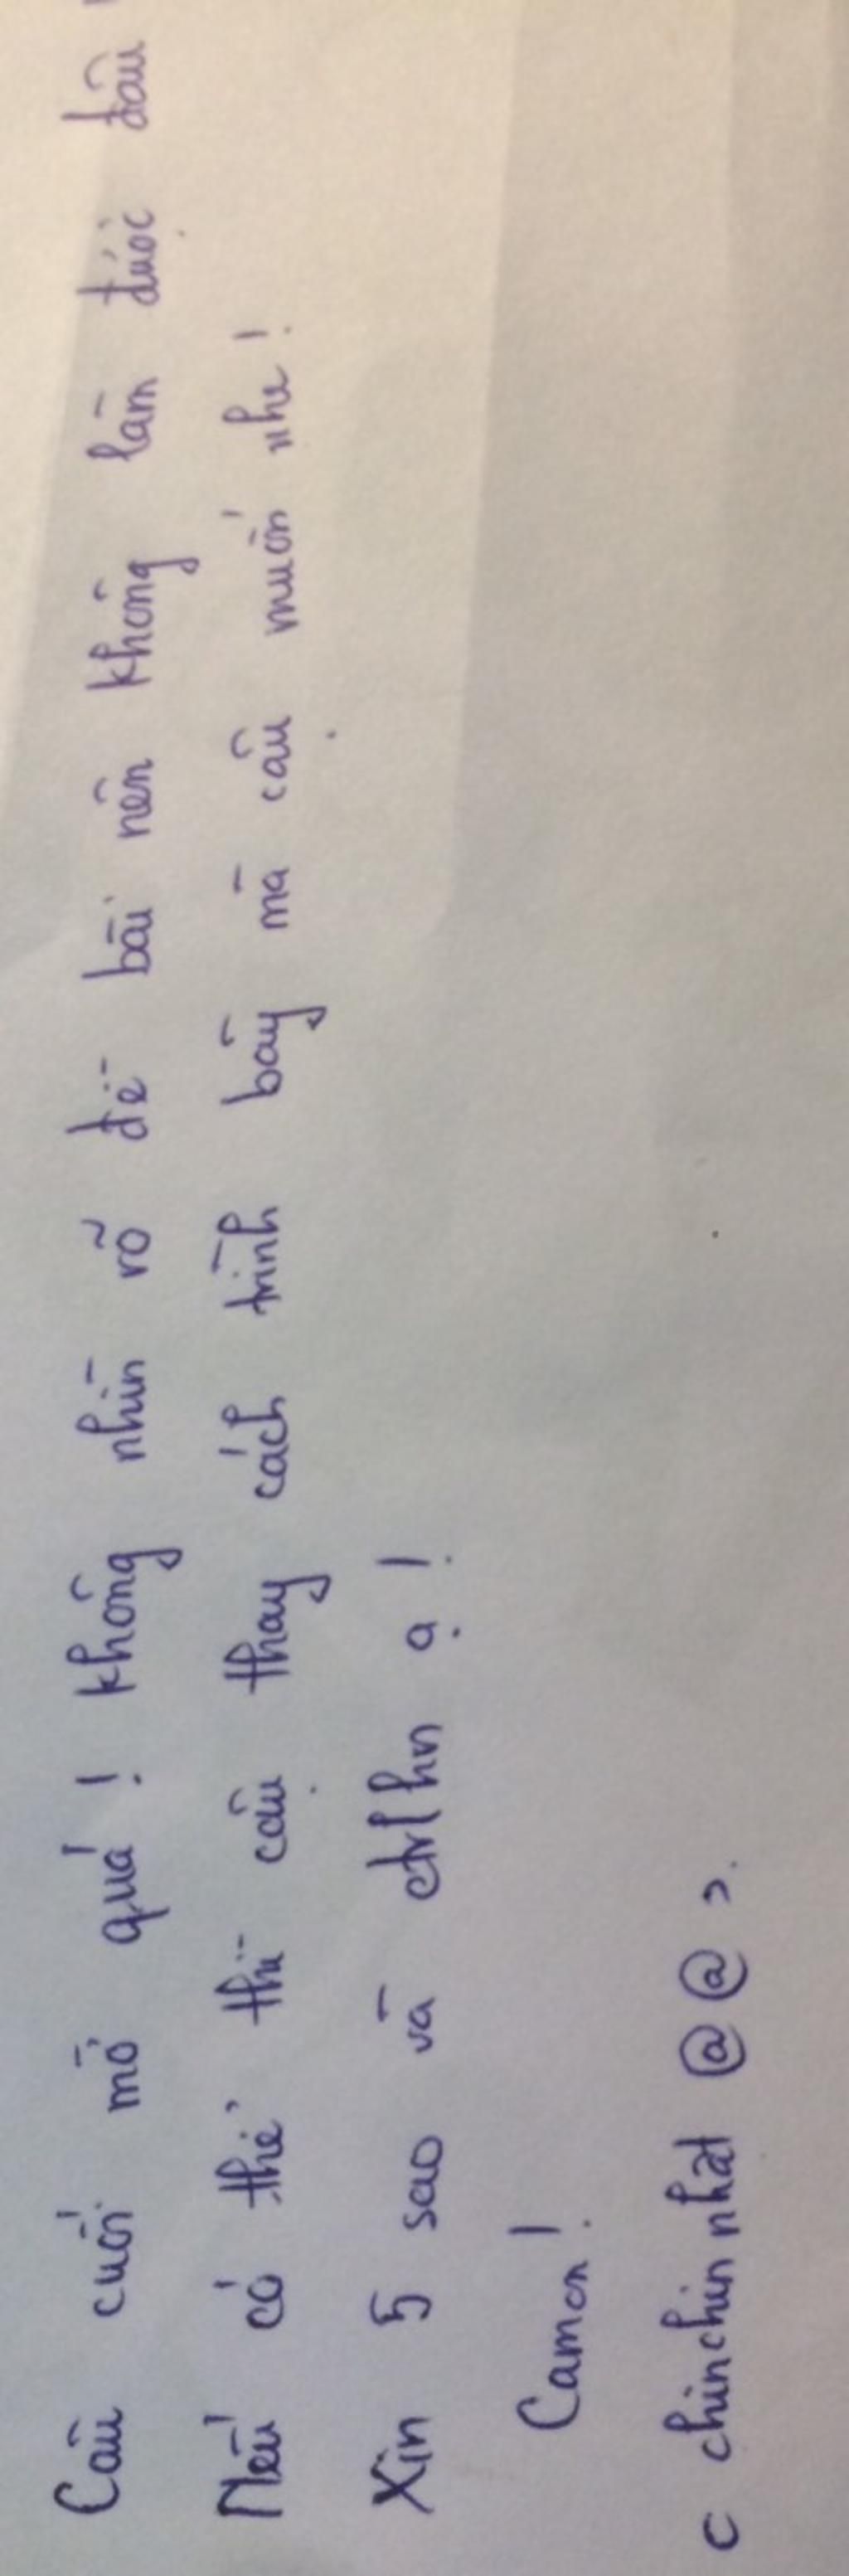 Câu cuối mờ quá ! không nhìn rõ đề bài nên không làm được đâu
Nếu có thể thì cậu thay cách trình bày mà cậu muốn nhe !
Xin 5 sao và ctrlhn ạ !
Camon !
c chinchin nhất @ @ ?